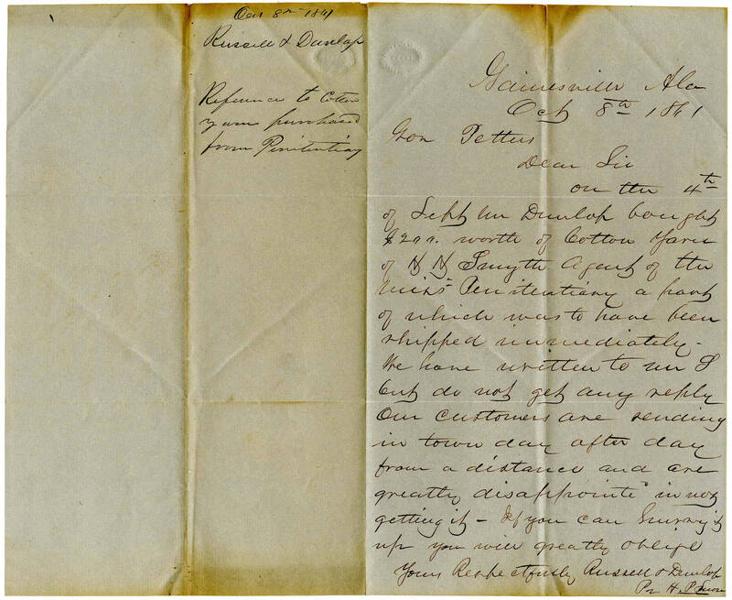 Oct 8th 1861
Russell & Dunlap
Reference to Cotton
yarn purchased
from Penitentiary
Gainesville Ala
Oct 8th 1861
Gov Pettus
Dear Sir
on the 4th
of Sept Mr Dunlap bought
worth of Cotton Yarn
of Smyth Agent of the
Miss Penitentiary a part
of which was to have been
shipped immediately.
We have written to Mr S
but do not get any reply
Our customers are sending
in town day after day
from a distance and are
greatly disappointe in not
getting it - If you can hurry it
up you will greatly oblige
Yours Respectfully Russell & Dunlap
Pr H. P.